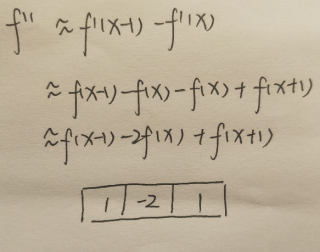 f'' ≈ f'(x-1) - f'(x)
≈ f(x-1) - f(x) - f(x) + f(x+1)
≈ f(x-1) - 2f(x) + f(x+1)
1 -2 1